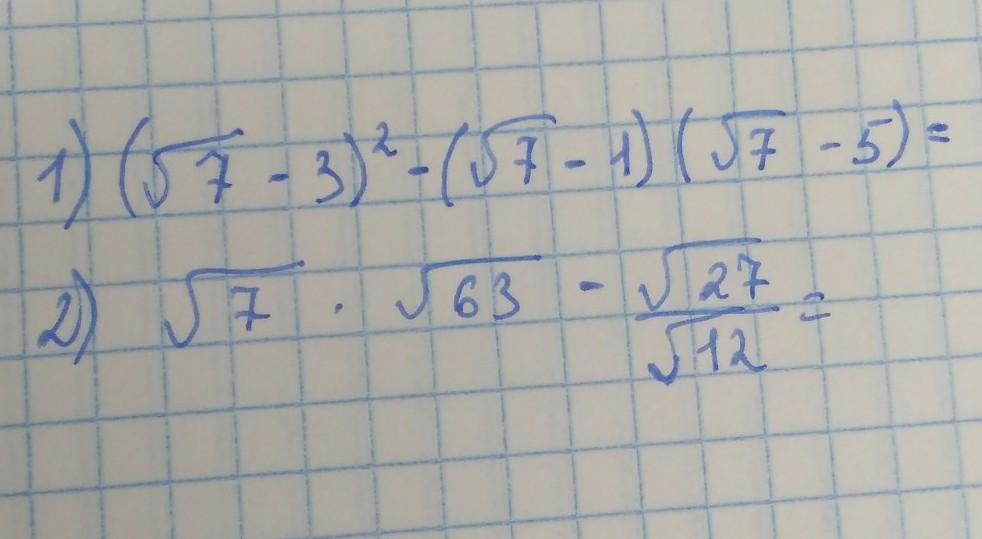 1) (√7 - 3)² - (√7 - 1) (√7 - 5) =
2) √7 · √63 - √27/√12 =